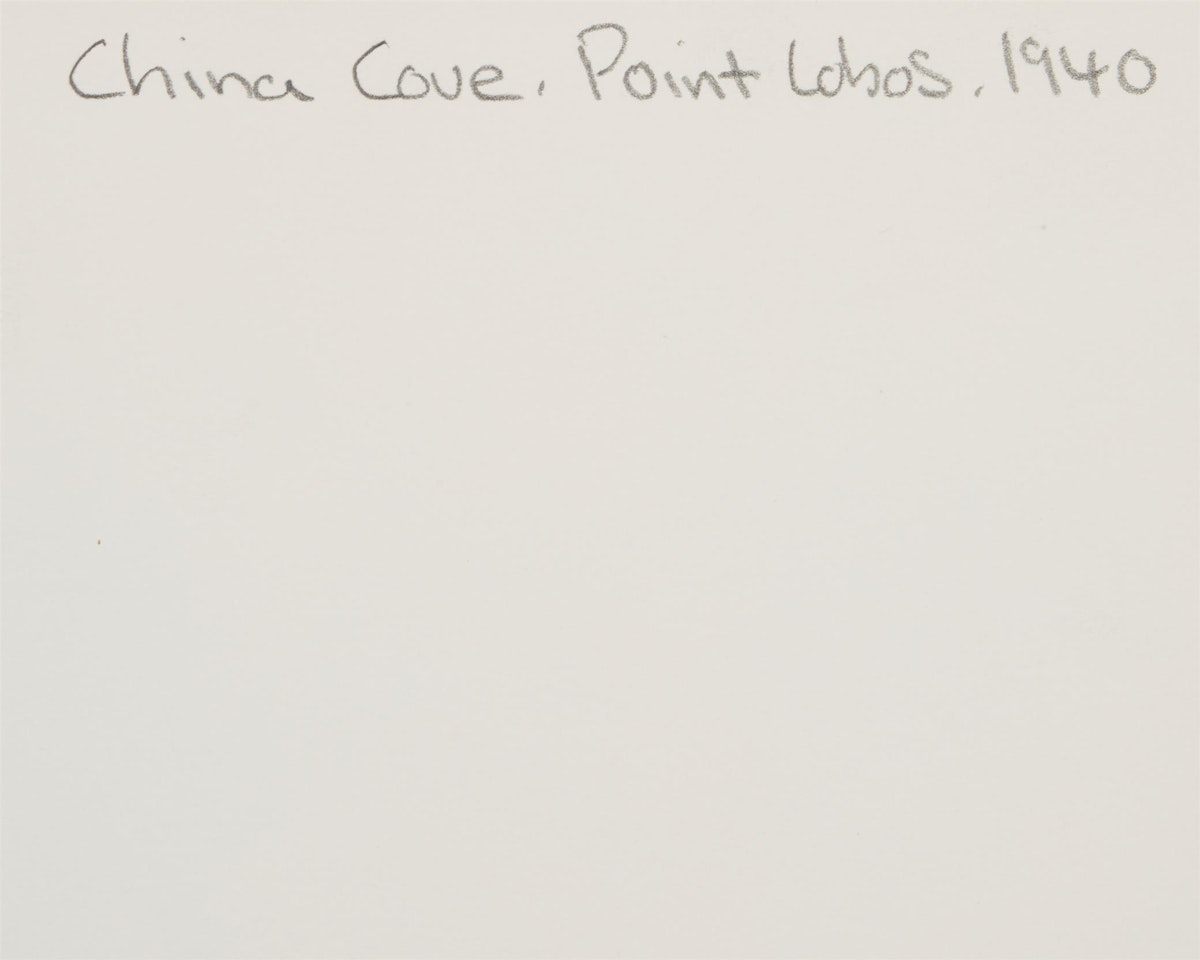 China Cove. Point Lobos. 1940